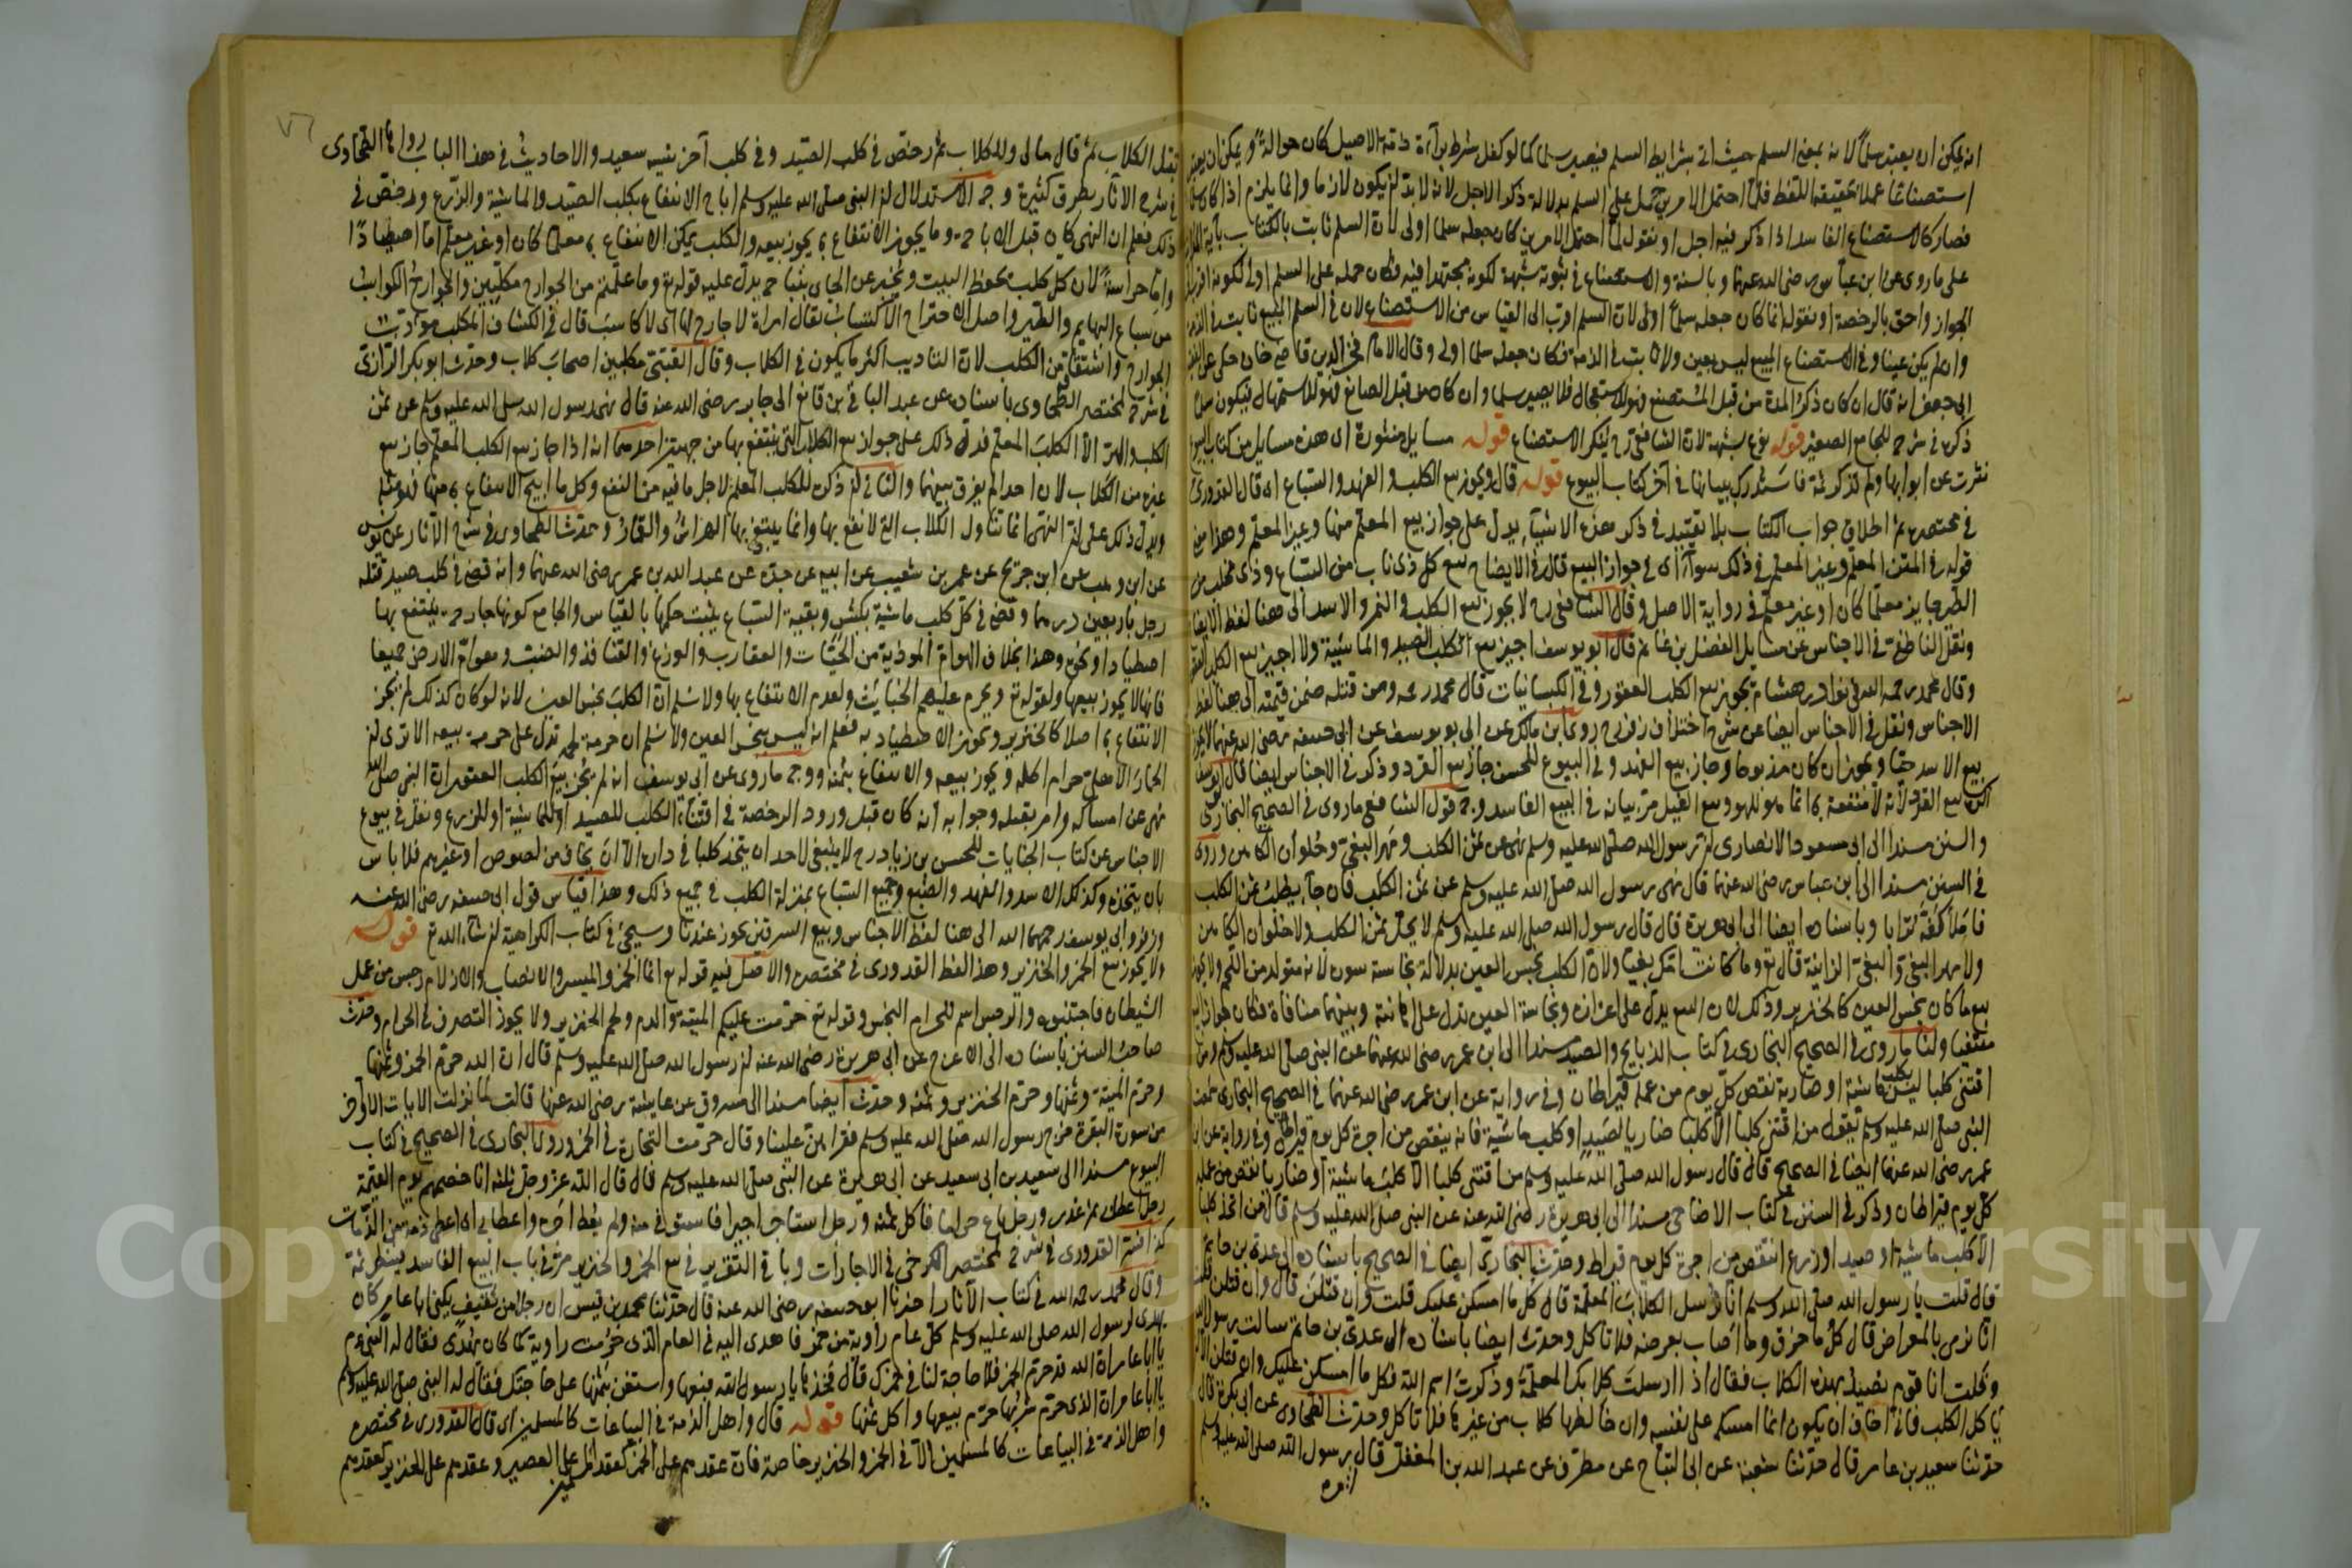 انه يمكن ان يعتبر سلما لانه بمعنى السلم حيث اتى بشرايط السلم فيصير سلما كما لو كفل بشرط براءة ذمة الاصيل كان حوالة ويمكن ان يعتبر
استصناعا عملا بحقيقة اللفظ فلما احتمل الامرين حمل على السلم بدلالة ذكر الاجل لانه لا بد ان يكون لازما وانما يلزم اذا كان سلما
فصار كالاستصناع الفاسد اذا ذكر فيه اجل او نقول لما احتمل الامرين كان جعله سلما اولى لان السلم ثابت بالكتاب
على ما روى عن ابن عباس رضى الله عنهما وبالسنة والاستصناع فى ثبوته شبهة لكونه مجتهدا فيه فكان حمله على السلم اولى لكونه اقرب الى
الجواز واحق بالرخصة او نقول انما كان جعله سلما اولى لان السلم اقرب الى القياس من الاستصناع لان فى السلم المبيع ثابت فى الذمة
وان لم يكن عينا وفى الاستصناع المبيع ليس بعين ولا ثابت فى الذمة فكان جعله سلما اولى وقال الامام فخر الدين قاضى خان حكى عن
ابى جعفر انه قال ان كان ذكر المدة من قبل المستصنع فهو للاستعجال فلا يصير سلما وان كان من قبل الصانع فهو للاستمهال فيكون سلما
ذكره فى شرح الجامع الصغير قوله نوع شبهة لان الشافعى رح ينكر الاستصناع قوله مسايل منثورة اى هذه مسايل من كتاب البيوع
نثرت عن ابوابها ولم تذكر ثمة فاستدرك ببيانها فى آخر كتاب البيوع قوله قال ويجوز بيع الكلب والفهد والسباع اى قال القدورى
فى مختصره ثم اطلاق جواب الكتاب بلا تقييد فى ذكر هذه الاشياء يدل على جواز بيع المعلم منها وغير المعلم وهذا معنى
قوله فى المتن المعلم وغير المعلم فى ذلك سواء اى فى جواز البيع قال فى الايضاح بيع كل ذى ناب من السباع وذى مخلب من
الطير جايز معلما كان او غير معلم فى رواية الاصل وقال الشافعى رح لا يجوز بيع الكلب والنمر والاسد الى هنا لفظ الايضاح
ونقل الناطفى فى الاجناس عن مسايل الفضل بن غانم قال ابو يوسف اجيز بيع الكلب الصيد والماشية ولا اجيز بيع الكلب العقور
وقال محمد رحمه الله فى نوادر هشام يجوز بيع الكلب العقور وفى الكيسانيات قال محمد رحمه ومن قتله ضمن قيمته الى هنا لفظ
الاجناس ونقل فى الاجناس ايضا عن شرح اختلاف زفر رح روى ابن مالك عن ابى يوسف عن ابى حنيفة رضى الله عنهما لا يجوز
بيع الاسد حيا ويجوز ان كان مذبوحا وجاز بيع الفهد وفى البيوع للحسن جاز بيع القرد وذكر فى الاجناس ايضا قال ابو يوسف
اكره بيع القرد لانه لا منفعة به انما هو للهو وبيع الفيل مر بيانه فى البيع الفاسد وجه قول الشافعى ما روى فى الصحيح البخارى
والسنن مسندا الى ابى مسعود الانصارى ان رسول الله صلى الله عليه وسلم نهى عن ثمن الكلب ومهر البغى وحلوان الكاهن وروى
فى السنن مسندا الى ابن عباس رضى الله عنهما قال نهى رسول الله صلى الله عليه وسلم عن ثمن الكلب فان جاء يطلب ثمن الكلب
فاملأ كفه ترابا وباسناده ايضا الى ابى هريرة قال قال رسول الله صلى الله عليه وسلم لا يحل ثمن الكلب ولا حلوان الكاهن
ولا مهر البغى والبغى الزانية قال تع وما كانت امك بغيا ولان الكلب نجس العين بدلالة نجاسة سوره لانه متولد من اللحم ولا يجوز
بيع ما كان نجس العين كالخنزير وذلك لان البيع يدل على اعزازه ونجاسة العين تدل على اهانته وبينهما منافاة فكان جواز البيع
منتفيا ولنا ما روى فى الصحيح البخارى فى كتاب الذبايح والصيد مسندا الى ابن عمر رضى الله عنهما عن النبى صلى الله عليه وسلم من
اقتنى كلبا ليس بكلب ماشية او ضارية نقص كل يوم من عمله قيراطان وفى رواية عن ابن عمر رضى الله عنهما فى الصحيح البخارى سمعت
النبى صلى الله عليه وسلم يقول من اقتنى كلبا الا كلبا ضاريا لصيد او كلب ماشية فانه ينقص من اجره كل يوم قيراطان وفى رواية عن ابن
عمر رضى الله عنهما ايضا فى الصحيح قال قال رسول الله صلى الله عليه وسلم من اقتنى كلبا الا كلب ماشية او ضاريا نقص من عمله
كل يوم قيراطان وذكر فى السنن فى كتاب الاضاحى مسندا الى ابى هريرة رضى الله عنه عن النبى صلى الله عليه وسلم قال من اتخذ كلبا
الا كلب ماشية او صيد او زرع انتقص من اجره كل يوم قيراط وحدث البخارى ايضا فى الصحيح باسناده الى عدى بن حاتم
قال قلت يا رسول الله صلى الله وسلم انا نرسل الكلاب المعلمة قال كل ما امسكن عليك قلت وان قتلن قال وان قتلن قلت
انا نرمى بالمعراض قال كل ما خزق وما اصاب بعرضه فلا تاكل وحدث ايضا باسناده الى عدى بن حاتم سالت رسول الله
وقلت انا قوم نصيد بهذه الكلاب فقال اذا ارسلت كلابك المعلمة وذكرت اسم الله فكل ما امسكن عليك وان قتلن الا ان
ياكل الكلب فانى اخاف ان يكون انما امسكه على نفسه وان خالطها كلاب من غيرها فلا تاكل وحدث الطحاوى عن ابى بكرة قال
حدثنا سعيد بن عامر قال حدثنا شعبة عن ابى التياح عن مطرف عن عبد الله بن المغفل قال رسول الله صلى الله عليه وسلم
٧٦
بقتل الكلاب ثم قال مالى وللكلاب ثم رخص فى كلب الصيد وفى كلب آخر نسيه سعيد والاحاديث فى هذا الباب رواها الطحاوى
فى شرح الآثار بطرق كثيرة وجه الاستدلال ان النبى صلى الله عليه وسلم اباح الانتفاع بكلب الصيد والماشية والزرع ورخص فى
ذلك فعلم ان النهى كان قبل الاباحة وما يجوز الانتفاع به يجوز بيعه والكلب يمكن الانتفاع به معلما كان او غير معلم اما اصطيادا
واما حراسة لان كل كلب يحفظ البيت ويخبر عن الجاى بنباحه يدل عليه قوله تع وما علمتم من الجوارح مكلبين والجوارح الكواسب
من سباع البهايم والطير واصل الاجتراح الاكتساب يقال امراة لا جارح لها اى لا كاسب قال فى الكشاف المكلب مؤدب
الجوارح واشتقاقه من الكلب لان التاديب اكثر ما يكون فى الكلاب وقال القتبى مكلبين اصحاب كلاب وحدث ابو بكر الرازى
فى شرح لمختصر الطحاوى باسناده عن عبد الباقى بن قانع الى جابر رضى الله عنه قال نهى رسول الله صلى الله عليه وسلم عن ثمن
الكلب والهر الا الكلب المعلم فدل ذلك على جواز بيع الكلاب التى ينتفع بها من جهتين احدهما انه اذا جاز بيع الكلب المعلم جاز بيع
غيره من الكلاب لان احدا لم يفرق بينهما والثانى ان ذكره للكلب المعلم لاجل ما فيه من النفع وكل ما ابيح الانتفاع به منها فهو مثله
ويدل ذلك على ان النهى انما تناول الكلاب التى لا نفع بها وانما يبتغى بها الهراش والقمار وحدث الطحاوى فى شرح الآثار عن يونس
عن ابن وهب عن ابن جريج عن عمر بن شعيب عن ابيه عن جده عن عبد الله بن عمر رضى الله عنهما وانه قضى فى كلب صيد قتله
رجل باربعين درهما وقضى فى كل كلب ماشية بكبش وبقية السباع يثبت حكمها بالقياس والجامع كونها جارحة ينتفع بها
اصطيادا ونحوه وهذا بخلاف الهوام الموذية من الحيات والعقارب والوزغ والقنافذ والضب وهوام الارض جميعا
فانها لا يجوز بيعها ولقوله تع ويحرم عليهم الخبايث ولعدم الانتفاع بها ولا نسلم ان الكلب نجس العين لانه لو كان كذلك لم يجز
الانتفاع به اصلا كالخنزير ويجوز الاصطياد به فعلم انه ليس بنجس العين ولا نسلم ان حرمة لحمه تدل على حرمة بيعه الا ترى ان
الحمار الاهلى حرام اكله ويجوز بيعه والانتفاع بثمنه ووجه ما روى عن ابى يوسف انه لم يجز بيع الكلب العقور ان النبى صلى الله
نهى عن امساكه وامر بقتله وجوابه انه كان قبل ورود الرخصة فى اقتناء الكلب للصيد او للماشية او للزرع ونقل فى بيوع
الاجناس عن كتاب الجنايات للحسن بن زياد رح لا ينبغى لاحد ان يتخذ كلبا فى داره الا ان يخاف من لصوص او غيرهم فلا باس
بان يتخذه وكذلك الاسد والفهد والضبع وجميع السباع بمنزلة الكلب فى جميع ذلك وهذا قياس قول ابى حنيفة رضى الله عنه
وزفر وابى يوسف رحمهما الله الى هنا لفظ الاجناس وبيع السرقين يجوز عندنا وسيجئ فى كتاب الكراهية ان شاء الله تع قوله
ولا يجوز بيع الخمر والخنزير وهذا لفظ القدورى فى مختصره والاصل فيه قوله تع انما الخمر والميسر والانصاب والازلام رجس من عمل
الشيطان فاجتنبوه والرجس اسم للحرام النجس وقوله تع حرمت عليكم الميتة والدم ولحم الخنزير ولا يجوز التصرف فى الحرام وحدث
صاحب السنن باسناده الى الاعرج عن ابى هريرة رضى الله عنه ان رسول الله صلى الله عليه وسلم قال ان الله حرم الخمر وثمنها
وحرم الميتة وثمنها وحرم الخنزير وثمنه وحدث ايضا مسندا الى مسروق عن عايشة رضى الله عنها قالت لما نزلت الايات الاواخر
من سورة البقرة خرج رسول الله صلى الله عليه وسلم فقراهن علينا وقال حرمت التجارة فى الخمر وروى البخارى فى الصحيح فى كتاب
البيوع مسندا الى سعيد بن ابى سعيد عن ابى هريرة عن النبى صلى الله عليه وسلم قال قال الله عز وجل ثلثة انا خصمهم يوم القيمة
رجل اعطى بى ثم غدر ورجل باع حرا فاكل ثمنه ورجل استاجر اجيرا فاستوفى منه ولم يعط اجره واعطابى اى اعطى ذمة من الذمات
كذا فسر القدورى فى شرح لمختصر الكرخى فى الاجارات وباقى التقرير فى بيع الخمر والخنزير مر فى باب البيع الفاسد ينظر ثمة
وقال محمد رحمه الله فى كتاب الآثار اخبرنا ابو حنيفة رضى الله عنه قال حدثنا محمد بن قيس ان رجلا من ثقيف يكنى ابا عامر كان
يهدى لرسول الله صلى الله عليه وسلم كل عام راوية من خمر فاهدى اليه فى العام الذى حرمت راوية كما كان يهدى فقال له النبى عم
يا ابا عامر ان الله قد حرم الخمر فلا حاجة لنا فى خمرك قال فخذها يا رسول الله فبعها واستعن بثمنها على حاجتك فقال له النبى صلى الله عليه وسلم
يا ابا عامر ان الذى حرم شربها حرم بيعها واكل ثمنها قوله قال واهل الذمة فى البياعات كالمسلمين اى قال القدورى فى مختصره
واهل الذمة فى البياعات كالمسلمين الا فى الخمر والخنزير خاصة فان عقدهم على الخمر كعقد المسلمين على العصير وعقدهم على الخنزير كعقدهم